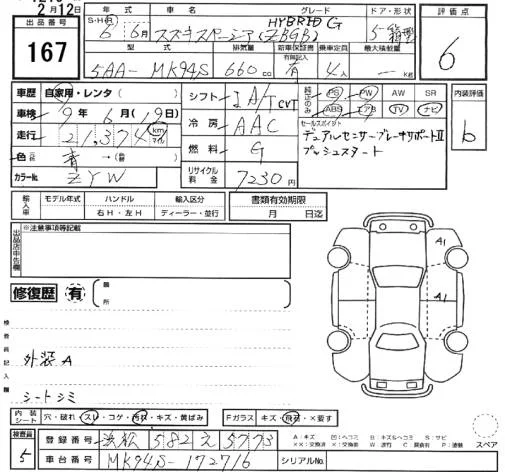 2月12日
出品番号
167
年式
車名
グレード
ドア・形状
評価点
S・H・R
6年 6月
スズキスペーシア(ZBGB) HYBRID G
5 箱型
6
型式
排気量
新車保証書
有無記入
乗車定員
最大積載量
5AA-MK94S
660 cc
有
4人
kg
車歴 自家用・レンタ(
車検 9年6月(19日
走行 21,374 km マイル
色 青 →(
カラーNo. ZYW
シフト IA/T CVT
冷房 AAC
燃料 G
リサイクル料金 7230円
純正のみ
PS PW AW SR
ABS エアB TV ナビ
内装評価
b
セールスポイント
デュアルセンサーブレーキサポートⅡ
プッシュスタート
輸入車
モデル年式
ハンドル
右H・左H
輸入区分
ディーラー・並行
書類有効期限
月 日迄
出品店申告欄
※注意事項等記載
修復歴 有
箇所
A1
A1
検査員記入欄
外装A
シートシミ
内装シート
穴・破れ・スレ・コゲ・汚れ・キズ・黄ばみ
Fガラス
キズ・飛石・×要す
検査員
5
登録番号 浜松 582 え 5773
車台番号 MK94S-172716
シリアルNo.
スペア